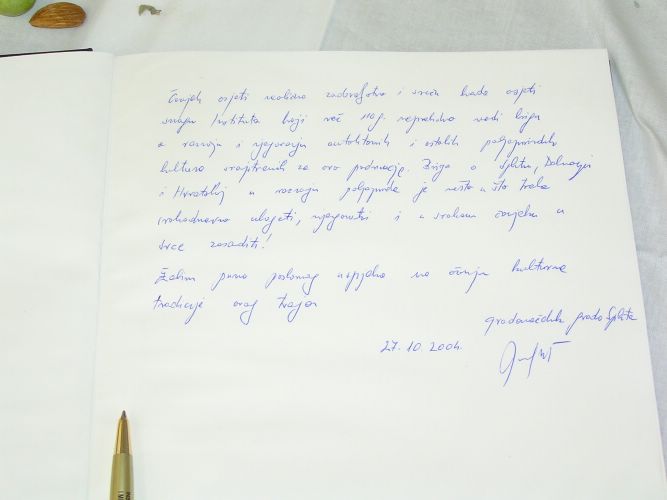 Čovjek osjeti veliko zadovoljstvo i sreću kada osjeti
snagu Instituta koji već 110 g. neprekidno vodi brigu
o razvoju i njegovanju autohtonih i ostalih poljoprivrednih
kultura svojstvenih za ovo područje. Briga o Splitu, Dalmaciji
i Hrvatskoj u razvoju poljoprivrede je nešto u što treba
svakodnevno ulagati, njegovati i u svakom čovjeku u
srce zasaditi!
Želim puno poslovnog uspjeha na očuvanju kulturne
tradicije ovog
gradonačelnik grada Splita
27. 10. 2004.